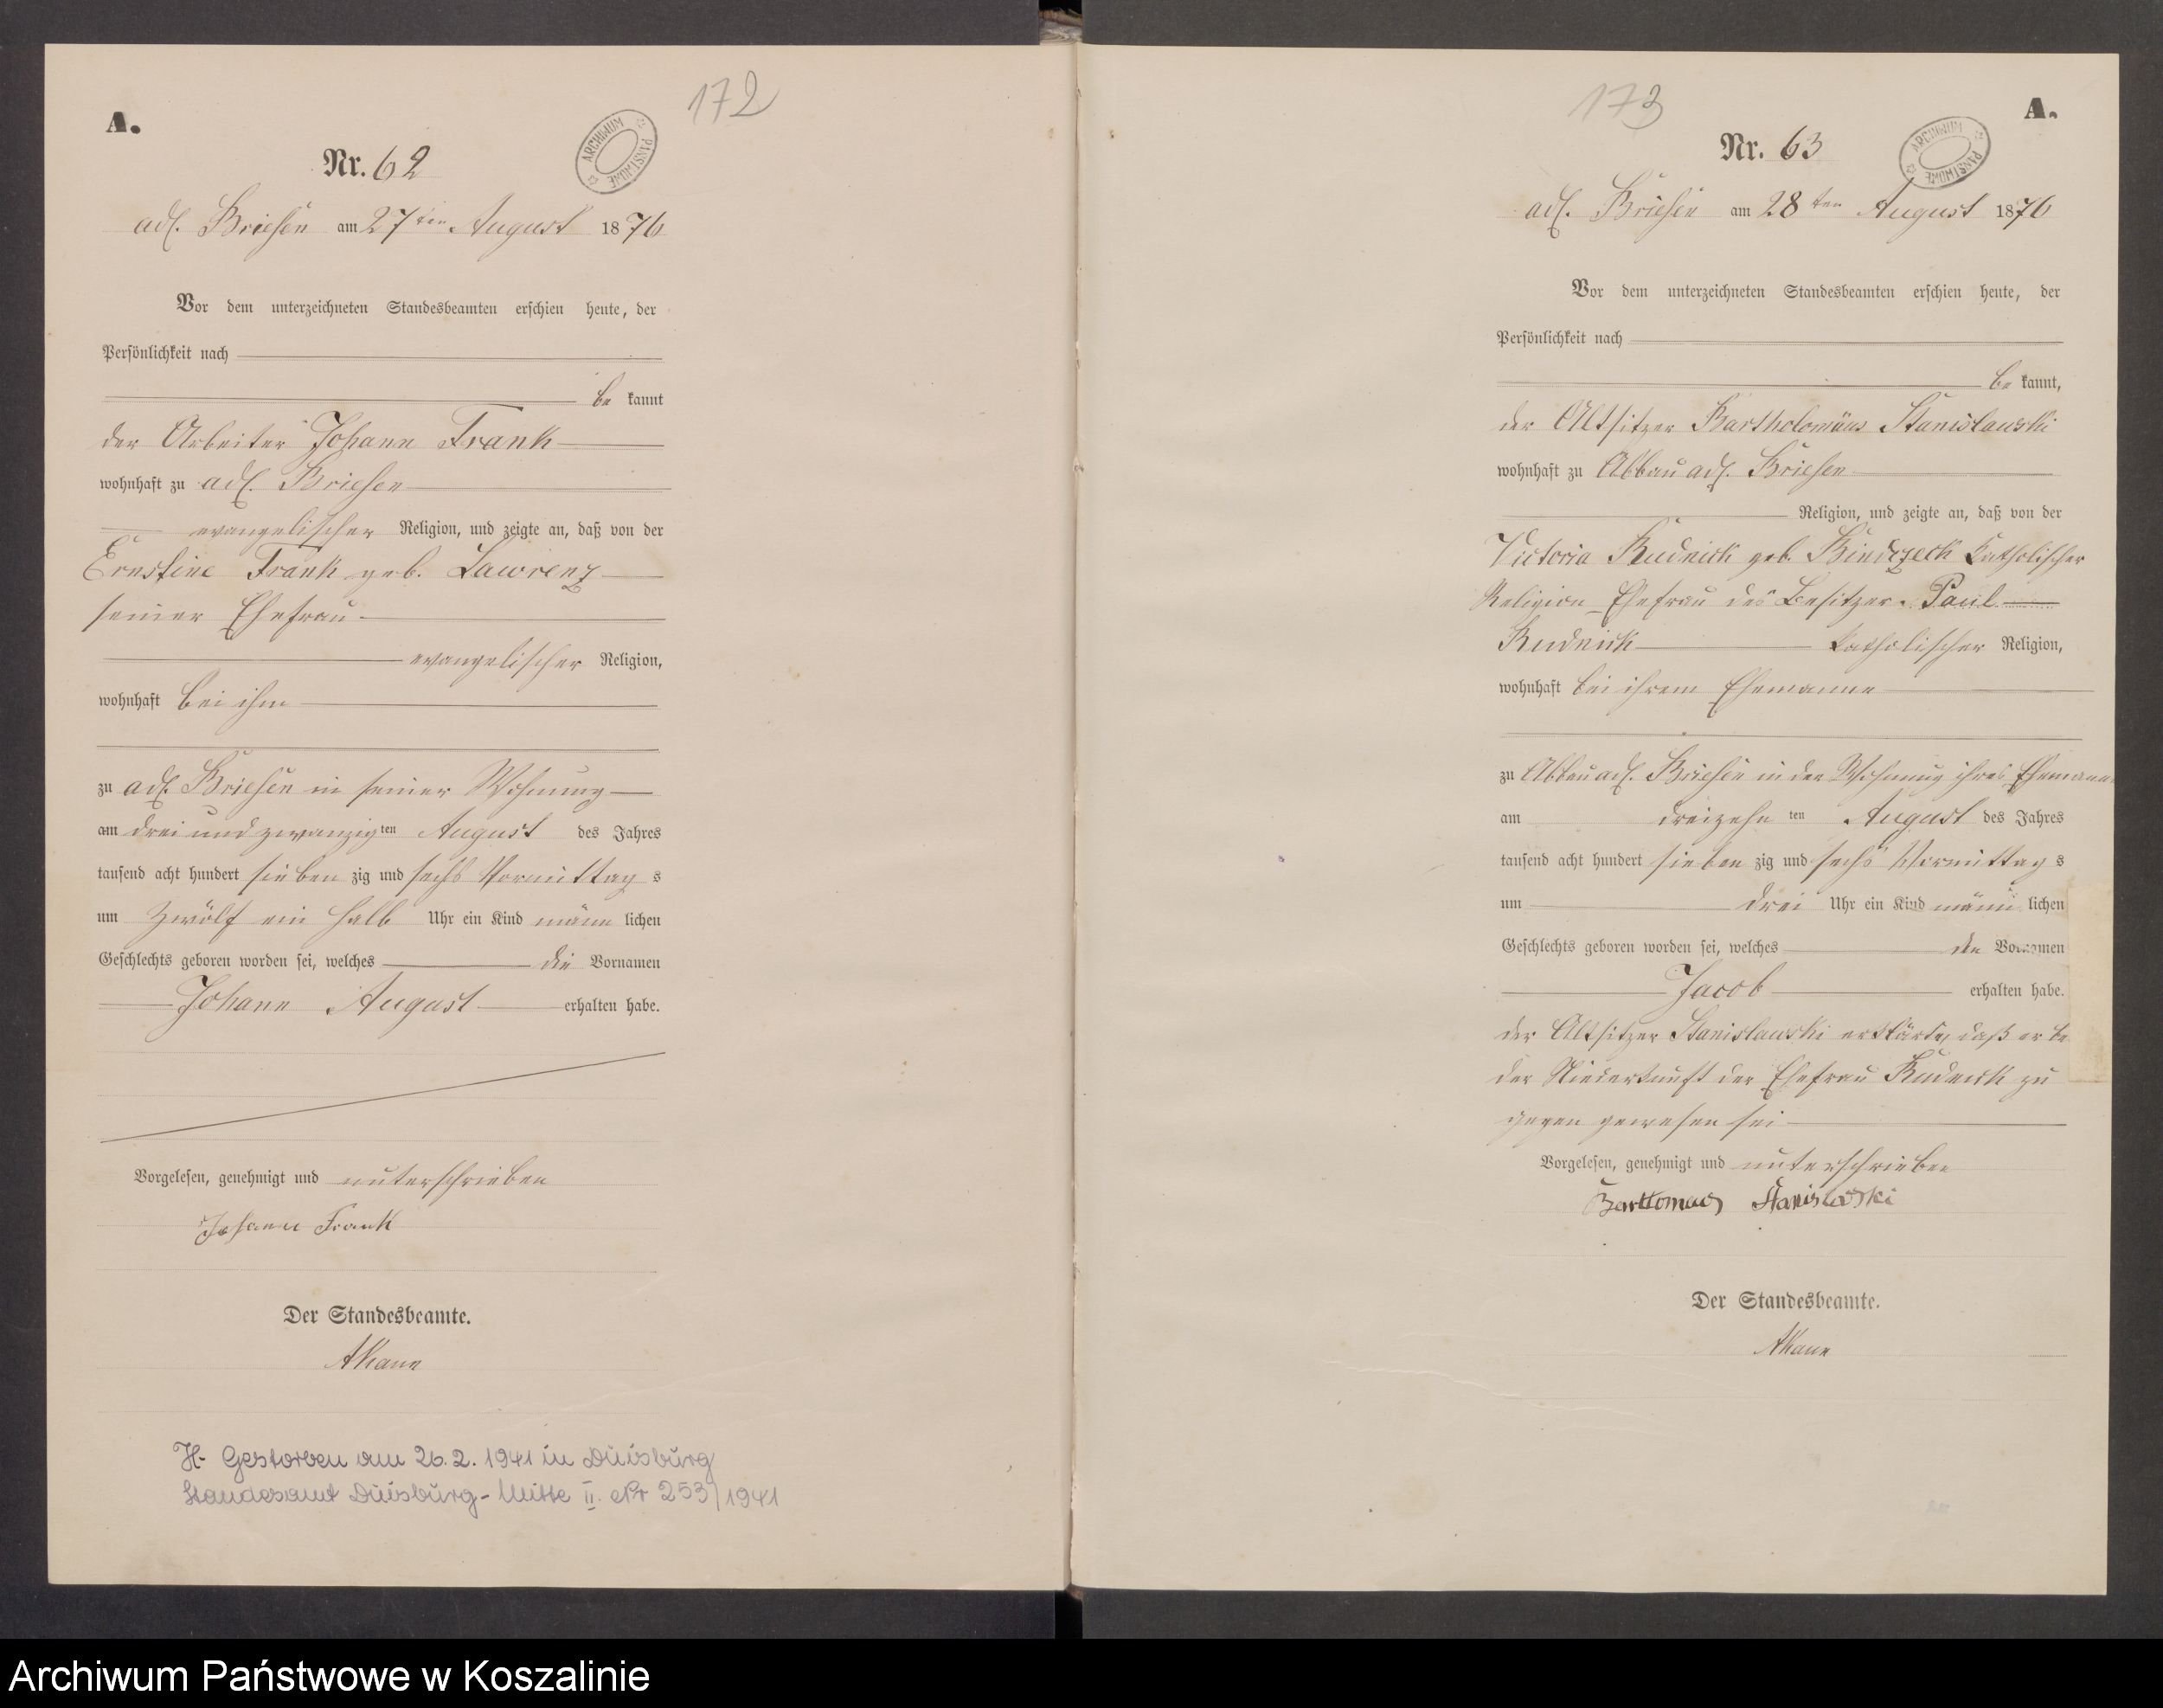 172
A.
ARCHIWUM PAŃSTWOWE
Nr. 62
adl. Briesen am 27ten August 1876
Vor dem unterzeichneten Standesbeamten erschien heute, der
Persönlichkeit nach
be kannt
der Arbeiter Johann Frank
wohnhaft zu adl. Briesen
evangelischer Religion, und zeigte an, daß von der
Ernstine Frank geb. Lawrenz
seiner Ehefrau
evangelischer Religion,
wohnhaft bei ihm
zu adl. Briesen in seiner Wohnung
am drei und zwanzigten August des Jahres
tausend acht hundert sieben zig und sechs Vormittag s
um zwölf ein halb Uhr ein Kind männ lichen
Geschlechts geboren worden sei, welches die Vornamen
Johann August erhalten habe.
Vorgelesen, genehmigt und unterschrieben
Johann Frank
Der Standesbeamte.
H. Gestorben am 26.2.1941 in Duisburg
Standesamt Duisburg-Mitte II. Nr 253/1941
173
A.
ARCHIWUM PAŃSTWOWE
Nr. 63
adl. Briesen am 28ten August 1876
Vor dem unterzeichneten Standesbeamten erschien heute, der
Persönlichkeit nach
be kannt,
der Altsitzer Bartholomäus Stanislawski
wohnhaft zu Abbau adl. Briesen
Religion, und zeigte an, daß von der
Victoria Rudnick geb. Katholischer
Religion Ehefrau des Besitzer Paul
Rudnick katholischer Religion,
wohnhaft bei ihrem Ehemanne
zu Abbau adl. Briesen in der Wohnung ihres Ehemann
am dreizehn ten August des Jahres
tausend acht hundert sieben zig und sechs Vormittag s
um drei Uhr ein Kind männ lichen
Geschlechts geboren worden sei, welches den Vornamen
Jacob erhalten habe.
der Altsitzer Stanislawski erklärte, daß er be
der Niederkunft der Ehefrau Rudnick zu
gegen gewesen sei
Vorgelesen, genehmigt und unterschrieben
Stanislaski
Der Standesbeamte.
Archiwum Państwowe w Koszalinie